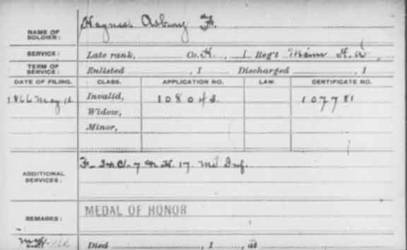 Haynes Asbury F.
NAME OF SOLDIER:
SERVICE: Late rank, Co. K, 1 Reg't Maine H. A.
TERM OF SERVICE: Enlisted , 1 Discharged , 1
DATE OF FILING. CLASS. APPLICATION NO. LAW. CERTIFICATE NO.
1866 May Invalid, 108042 107781
Widow,
Minor,
ADDITIONAL SERVICES: F 17 Inf.
REMARKS: MEDAL OF HONOR
Died , 1 , at